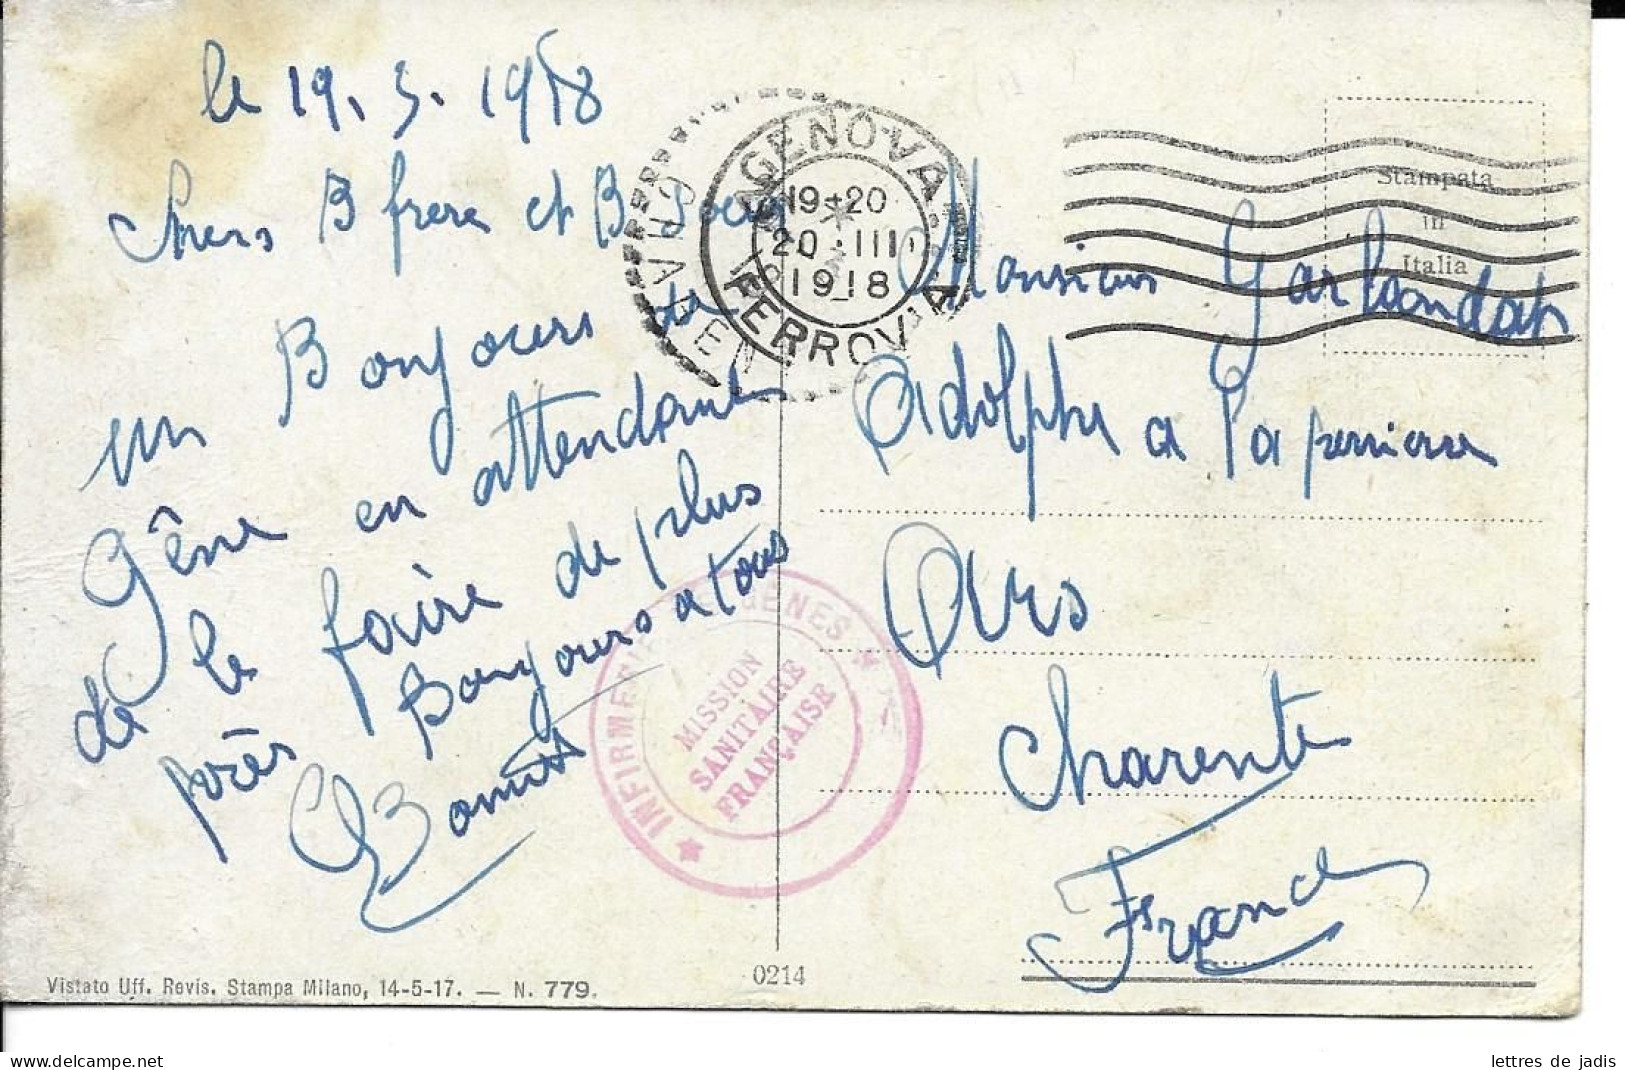 le 19. 3. 1918
Chers B frere et B Soeur
un Bonjours de
Gêne en attendant
de le faire de plus
près Bonjours a tous
GENOVA
FERROVIA
19-20
20 · III
1918
Stampata
in
Italia
Monsieur
Adolphe a La
Ars
Charente
France
INFIRMERIE DE GÊNES
MISSION
SANITAIRE
FRANÇAISE
Vistato Uff. Revis. Stampa Milano, 14-5-17. — N. 779.
0214
lettres de jadis